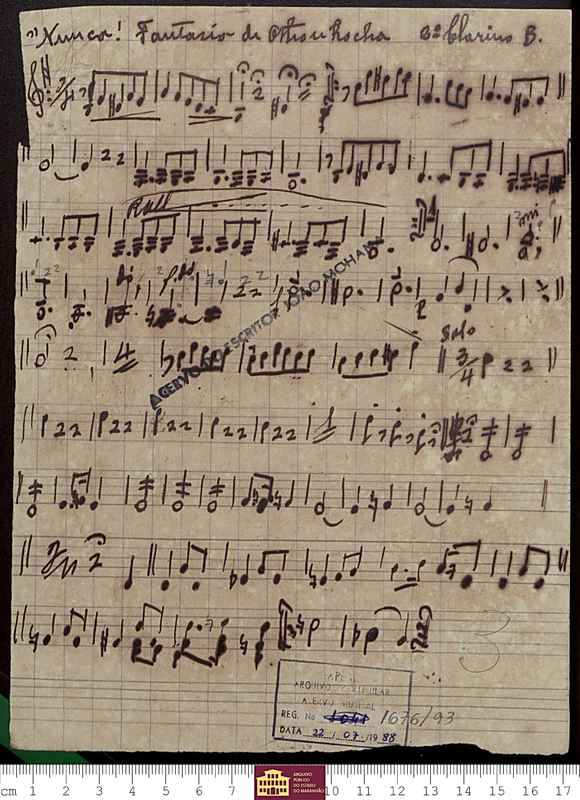 "Nunca! Fantasia de Othon Rocha 2º Clarino B.
Rall
ACERVO DO ESCRITOR JOÃO MOHANA
Solo
3
APEM
ARQUIVO PARTICULAR
ACERVO MUSICAL
REG. No 1676/93
DATA 22 / 07 /19 88
ARQUIVO
PÚBLICO
DO ESTADO
DO MARANHÃO
cm 1 2 3 4 5 6 7 10 11 12 13 14 15 16 17